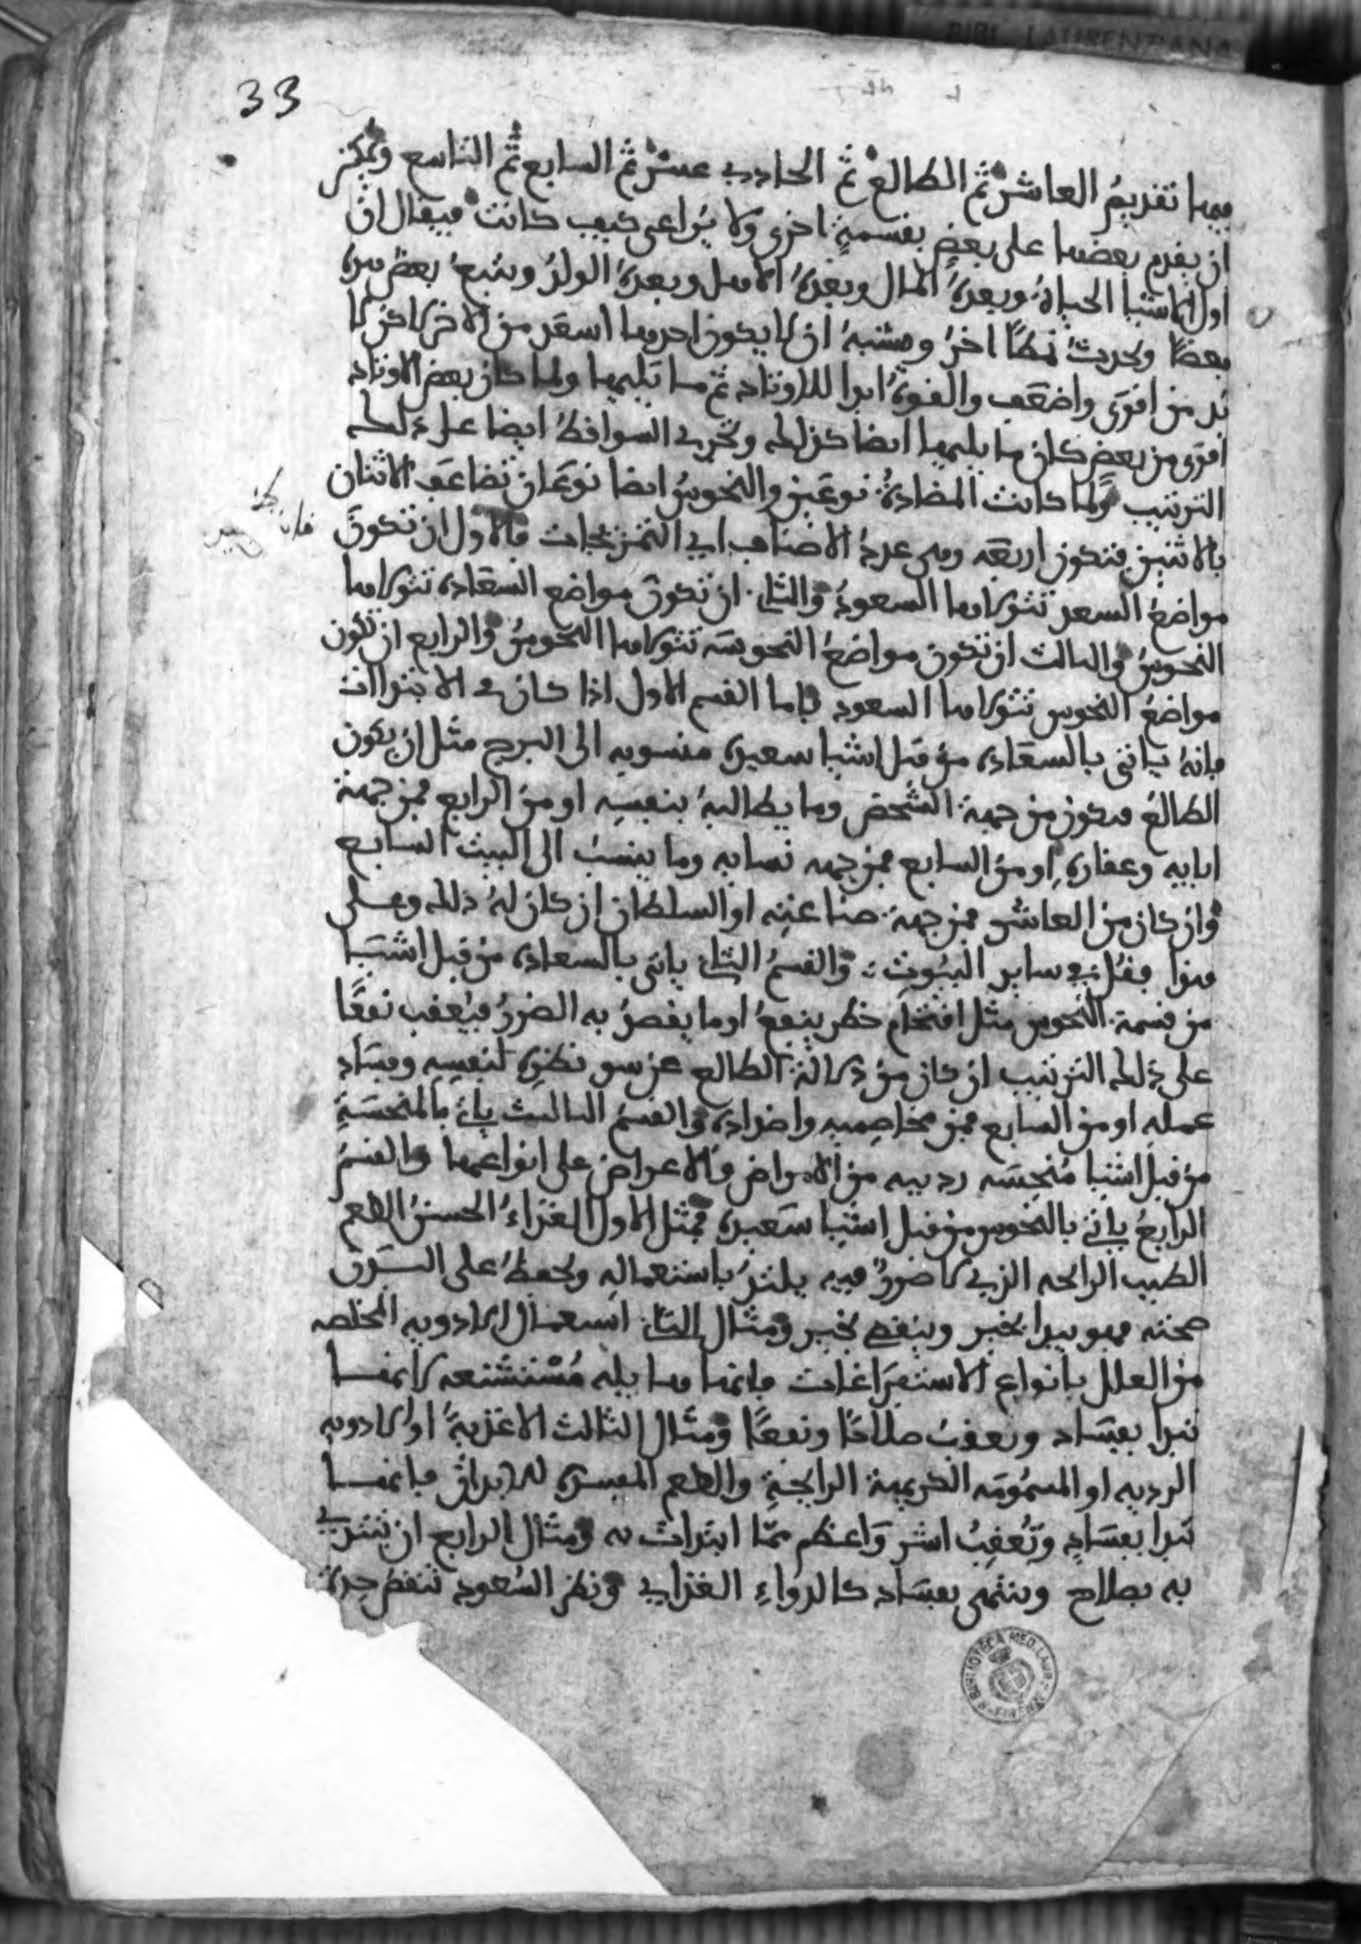 BIBL. LAURENZIANA
33
فيها تقديم العاشر ثم الطالع ثم الحادي عشر ثم السابع ثم التاسع ويمكن
ان يقدم بعضها على بعض بقسمة اخرى ولا يراعى كيف كانت فيقال ان
اول الاشيا الحياة وبعده المال وبعده الاهل وبعده الولد ويتبع بعض هذه
بعضا ويحدث نمطا اخر ويشبه ان لا يكون احدهما اسعد من الاخر لاكن لا
بد من اقوى واضعف والقوة ابدا للاوتاد ثم ما يليها ولما كان بعض الاوتاد
اقوى من بعض كان ما يليها ايضا كذلك وتجري السواقط ايضا على ذلك
الترتيب ولما كانت المضادة نوعين والنحوس ايضا نوعان تضاعف الاثنان
بالاثنين فتكون اربعه وهى عدة الاصناف اي التمزيجات فالاول ان تكون
مواضع السعد تتولاها السعود والثاني ان تكون مواضع السعاده تتولاها
النحوس والثالث ان تكون مواضع النحوسه تتولاها النحوس والرابع ان تكون
مواضع النحوس تتولاها السعود فاما القسم الاول اذا كان في الابتزازات
فانه ياتي بالسعاده من قبل اشيا سعيده منسوبه الى البرج مثل ان يكون
الطالع فيكون من جهة الشخص وما يطالبه بنفسه او من الرابع فمن جهة
ابايه وعقاره او من السابع فمن جهه نسايه وما ينسب الى البيت السابع
وان كان من العاشر فمن جهة صناعته او السلطان ان كان له ذلك وعلى
هذا فقل في ساير البيوت والقسم الثاني ياتي بالسعاده من قبل اشيا
من قسمة النحوس مثل اقتحام خطر ينفع او ما يقصد به الضرر فيعقب نفعا
على ذلك الترتيب ان كان من دلالة الطالع عن سو نظره لنفسه وفساد
عمله او من السابع فمن مخاصميه واضداده والقسم الثالث ياتي بالمنحسة
من قبل اشيا منحسه رديه من الامراض والاعراض على انواعها والقسم
الرابع ياتي بالنحوس من قبل اشيا سعيده فمثل الاول الغذاء الحسن الطعم
الطيب الرايحه الذي لا ضرر فيه يلتذ باستعماله ويحفظ على البدن
صحته فهو يبدا بخير وينقضي بخير ومثال الثاني استعمال الادويه المخلصه
من العلل بانواع الاستفراغات فانها مستشنعه لانها
تبدا بفساد وتعقب صلاحا ونفعا ومثال الثالث الاغذية او الادويه
الرديه او المسمومه الكريهة الرايحة والطعم المفسده للابدان فانها
تبدا بفساد وتعقب اشر واعظم مما ابتدات به ومثال الرابع ان يبتدي
به بصلاح وينتهى بفساد كالدواء الغذاي ونظر السعود تنقض حدة